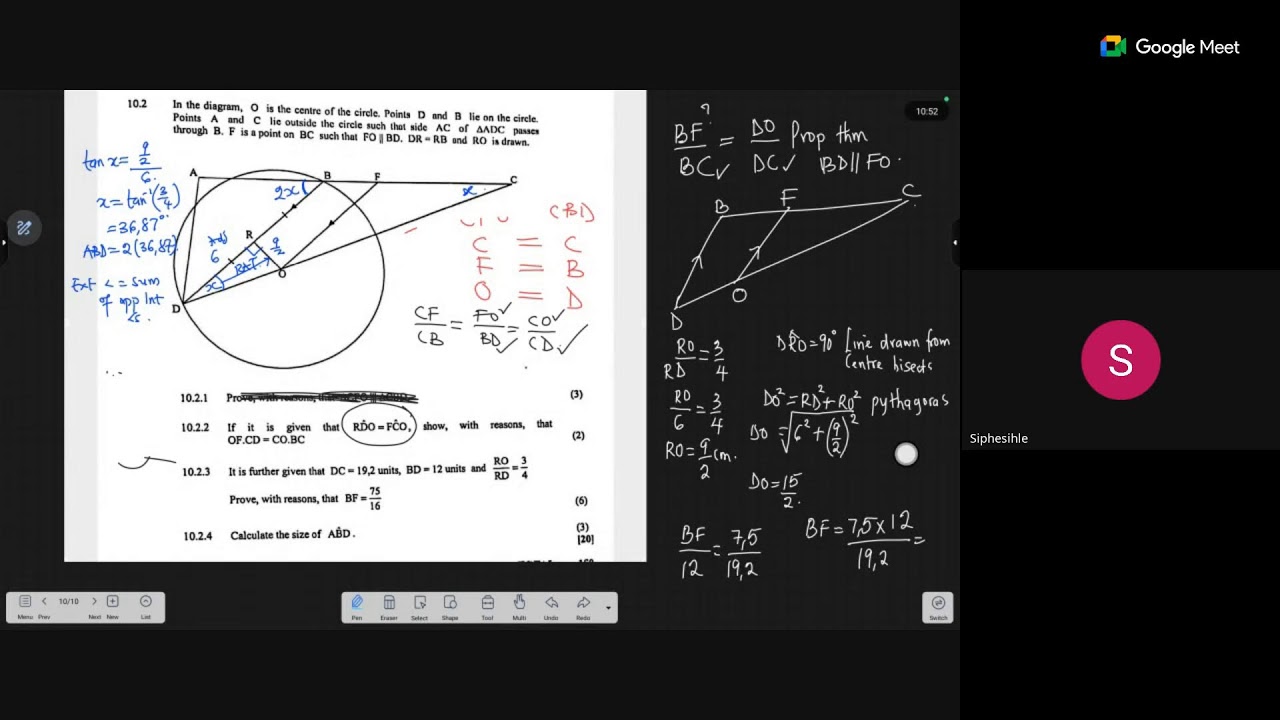 Google Meet
10:52
10.2 In the diagram, O is the centre of the circle. Points D and B lie on the circle.
Points A and C lie outside the circle such that side AC of ΔADC passes
through B. F is a point on BC such that FO || BD. DR = RB and RO is drawn.
tan x = 9/2 / 6
x = tan⁻¹(3/4)
= 36,87°
ABD = 2(36,87)
Ext < = sum
of opp Int
<s.
A
B
F
C
2x
x
R
6
9/2
O
x
D
(CBD)
C = C
F = B
O = D
CF/CB = FO/BD = CO/CD
...
10.2.1 (3)
10.2.2 If it is given that RD̂O = FĈO, show, with reasons, that
OF.CD = CO.BC (2)
10.2.3 It is further given that DC = 19,2 units, BD = 12 units and RO/RD = 3/4
Prove, with reasons, that BF = 75/16 (6)
10.2.4 Calculate the size of AB̂D. (3)
[20]
?
BF/BC = DO/DC Prop thm BD || FO.
B
F
C
O
D
RO/RD = 3/4
RO/6 = 3/4
RO = 9/2 cm.
DR̂O = 90° Line drawn from
Centre bisects
DO² = RD² + RO² pythagoras
DO = √6² + (9/2)²
DO = 15/2.
BF/12 = 7,5/19,2
BF = 7,5 x 12/19,2 =
Siphesihle
S
Menu Prev 10/10 Next New List
Pen Eraser Select Shape Tool Multi Undo Redo
Switch